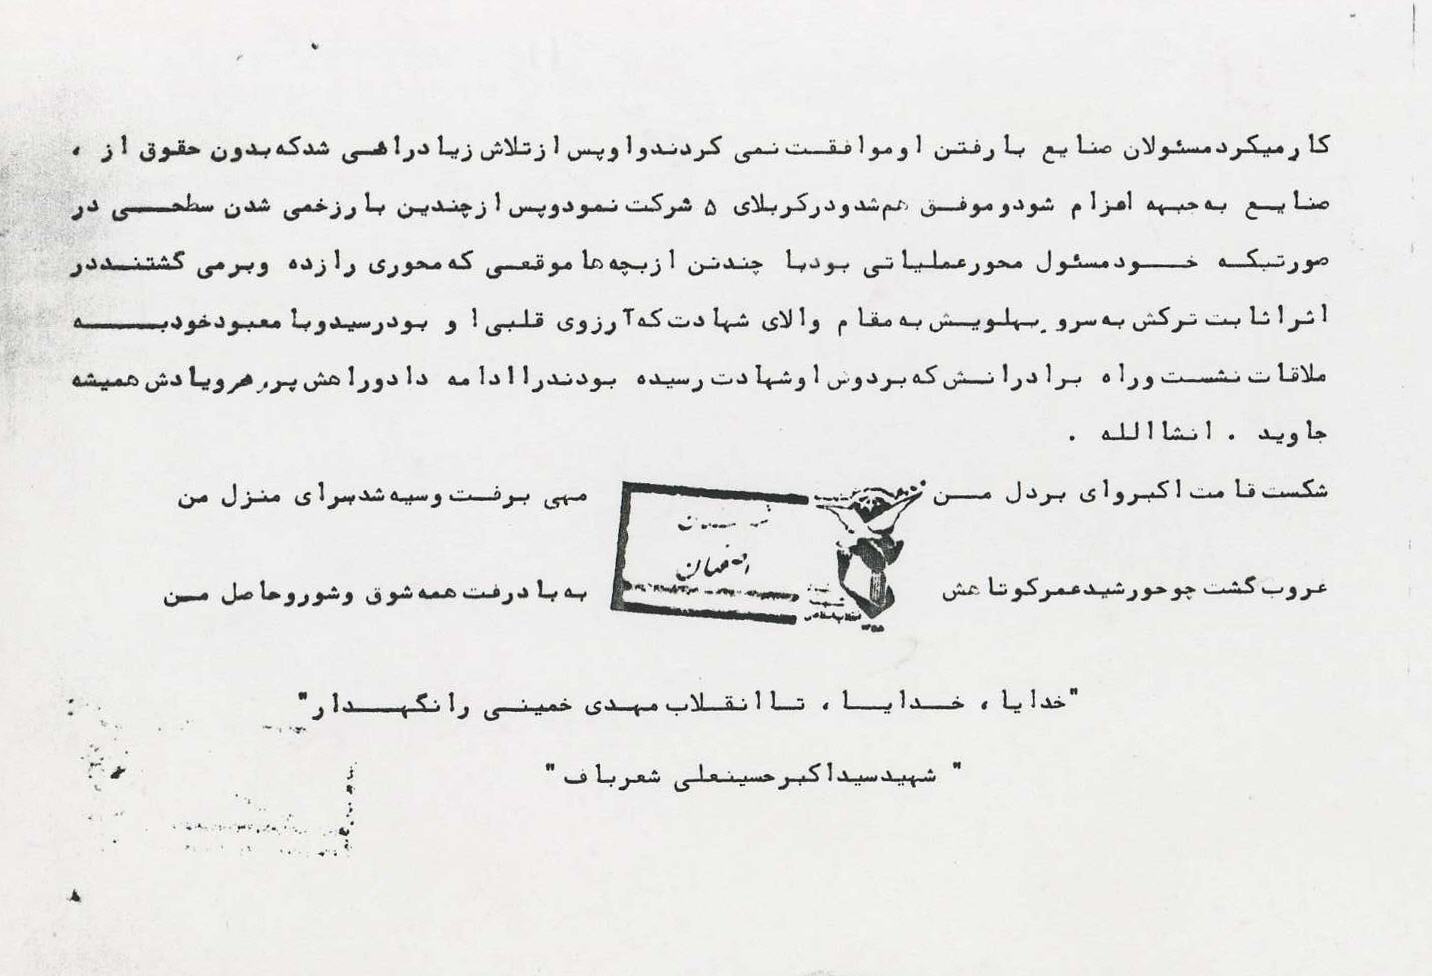 کار میکرد مسئولان صنایع با رفتن او موافقت نمی کردند و او پس از تلاش زیاد راضی شد که بدون حقوق از ،
صنایع به جبهه اعزام شود و موفق هم شد و در کربلای ۵ شرکت نمود و پس از چندین بار زخمی شدن سطحی در
صورتیکه خود مسئول محور عملیاتی بود با چند تن از بچه ها موقعی که محوری را زده و بر می گشتند در
اثر اثابت ترکش به سر و پهلویش به مقام والای شهادت که آرزوی قلبی ا و بود رسید و با معبود خود به
ملاقات نشست و راه برادرانش که بر دوش او شهادت رسیده بودند را ادامه داد و راهش پر رهرو یادش همیشه
جاوید . انشاالله .
شکست قامت اکبر وای بر دل من مهی برفت و سیه شد سرای منزل من
غروب گشت چو خورشید عمر کوتاهش به باد رفت همه شوق و شور و حاصل من
اصفهان
"خدایا ، خدایا ، تا انقلاب مهدی خمینی را نگهدار"
" شهید سید اکبر حسینعلی شعرباف "